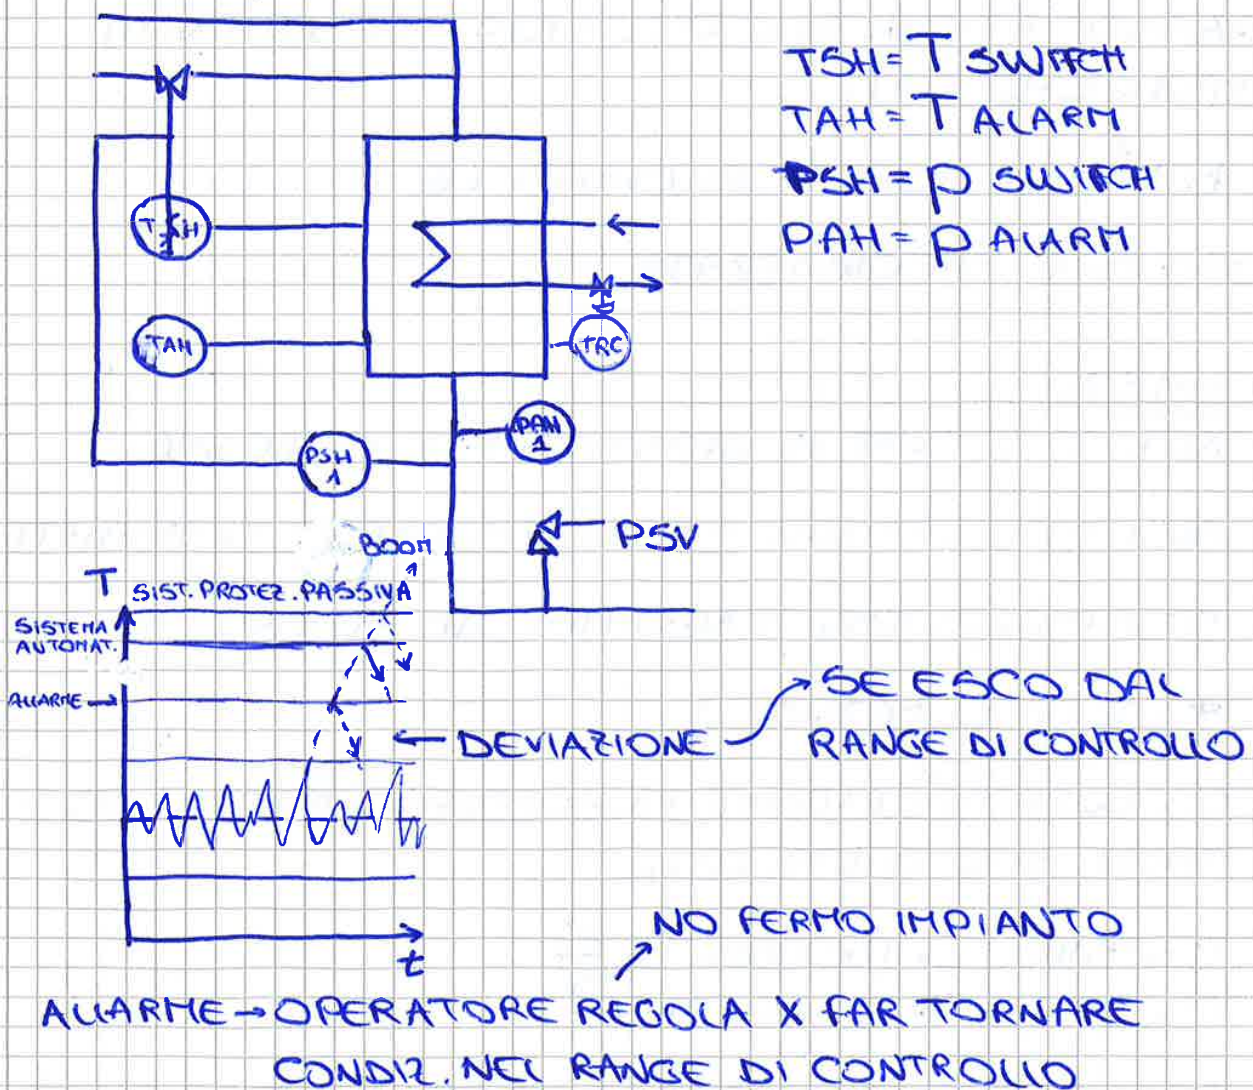 TSH = T SWITCH
TAH = T ALARM
PSH = P SWITCH
PAH = P ALARM
TSH
1
TAH
TRC
PAH
1
PSH
1
PSV
BOOM
T
SIST. PROTEZ. PASSIVA
SISTEMA
AUTOMAT.
ALLARME →
← DEVIAZIONE → SE ESCO DAL
RANGE DI CONTROLLO
t
NO FERMO IMPIANTO
ALLARME → OPERATORE REGOLA X FAR TORNARE
CONDIZ. NEL RANGE DI CONTROLLO